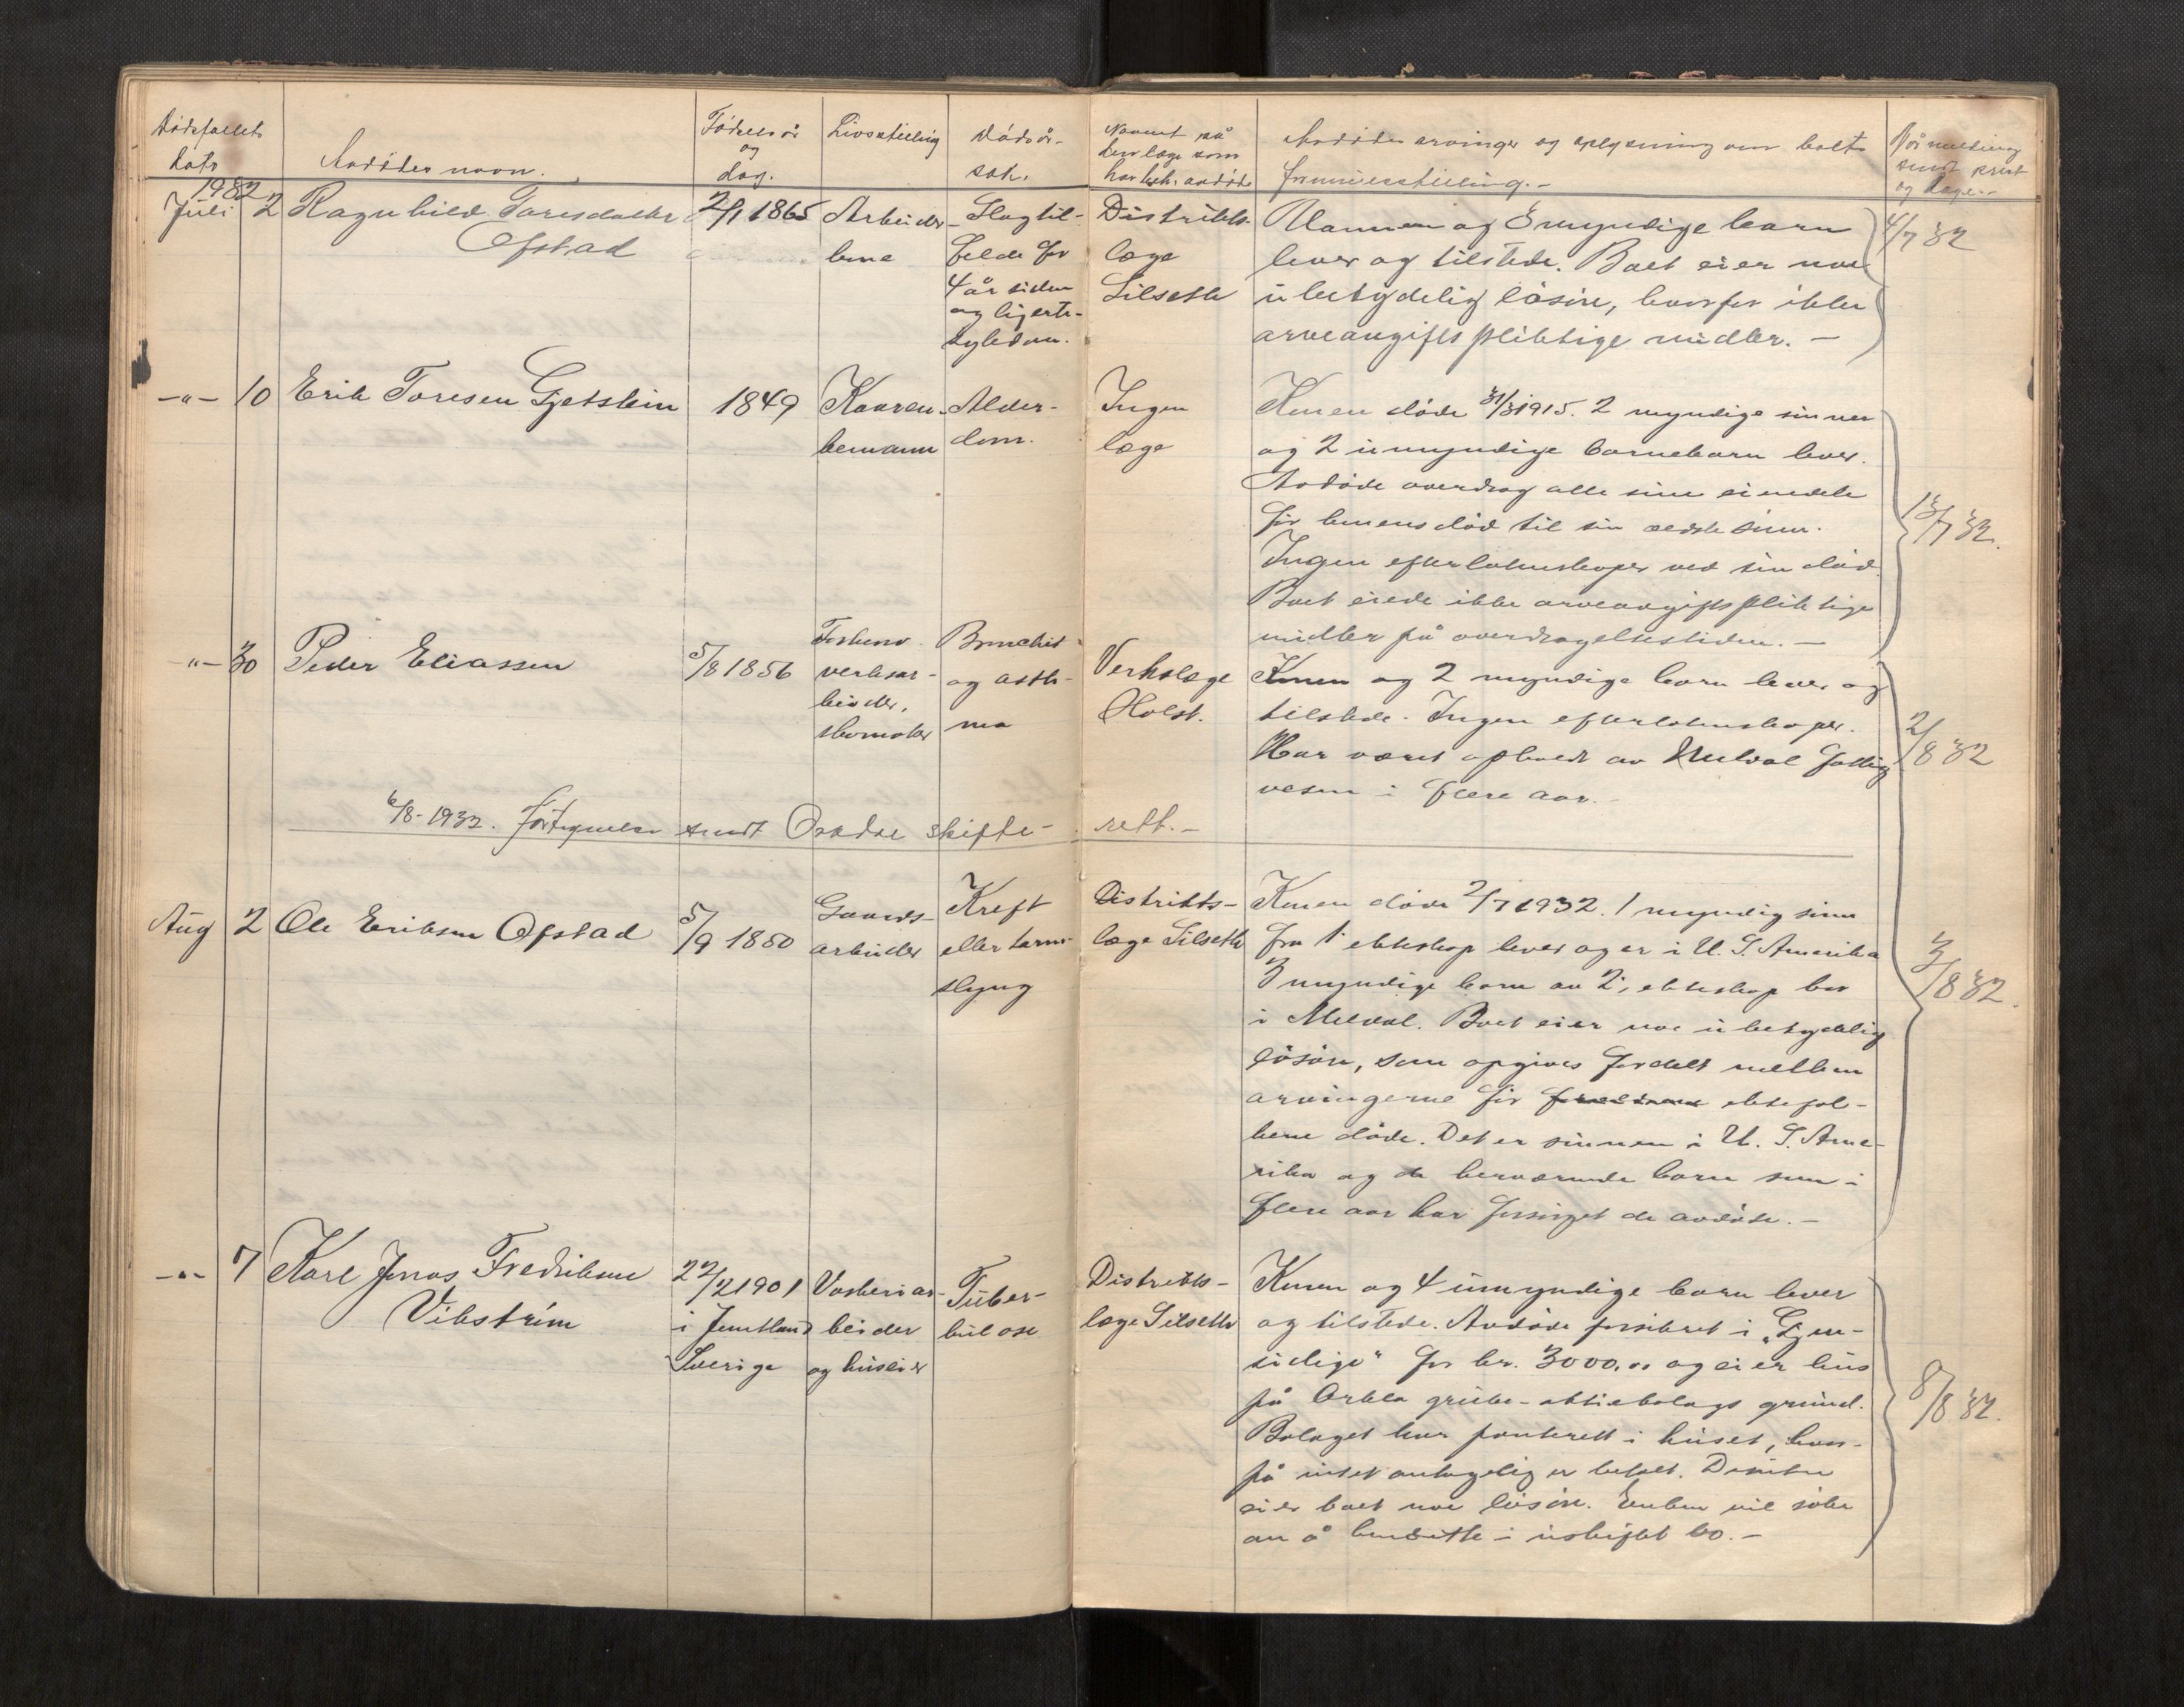 Dødsfallets
dato
Avdødes navn.
Fødselsår
og
dag.
Livsstilling
Dødsår-
sak.
Navnet på
den læge som
har beh. avdøde
Avdødes arvinger og oplysning om boets
formuesstilling. -
Når melding
sendt prest
og læge.-
1932
Juli 2 Ragnhild Toresdatter
Ofstad
2/1 1865
Arbeider-
kone
Slagtil-
felde for
4 år siden
og hjerte-
sykdom.
Distrikts-
læge
Lilseth
Mannen og 3 myndige barn
lever og tilstede. Boet eier noe
ubetydelig løsøre, hvorfor ikke
arveavgiftspliktige midler. -
4/7 32
-"- 10 Erik Toresen Gjetstein
1849
Kaaren-
kemann
Alder-
dom.
Ingen
læge
Konen døde 31/3 1915. 2 myndige sønner
og 2 umyndige barnebarn lever.
Avdøde overdrog alle sine eiendele
før konens død til sin ældste sønn.
Ingen efterlatenskaper ved sin død.
Boet eiede ikke arveavgiftspliktige
midler på overdragelsestiden. -
13/7 32.
-"- 30 Peder Eliassen
5/8 1856
verksar-
beider,
skomaker
Bronchit
og asth-
ma
Verkslæge
Holst.
Konen og 2 myndige barn lever og
tilstede. Ingen efterlatenskaper.
Har været opholdt av Meldal fattig
vesen i flere aar. -
2/8 32
6/8-1932. Fortegnelse sendt Orkdal skifte-
rett. -
Aug 2 Ole Eriksen Ofstad
5/9 1850
Gaards-
arbeider
Kreft
eller tarm-
slyng
Distrikts-
læge Lilseth
Konen døde 2/7 1932. 1 myndig sønn
fra 1. ekteskap lever og er i U. S. Amerika
3 myndige barn av 2. ekteskap bor
i Meldal. Boet eier noe ubetydelig
løsøre, som opgives fordelt mellem
arvingerne før ektefol-
kene døde. Det er sønnen i U. S. Ame-
rika og de herværende barn som i
flere aar har forsørget de avdøde. -
3/8 32.
-"- 7 Karl Jonas Fredriksen
Vikström
22/2 1901
i Jemtland
Sverige
Vaskeriar-
beider
og huseier
Tuber-
kulose
Distrikts-
læge Lilseth
Konen og 4 umyndige barn lever
og tilstede. Avdøde forsikret i "Gjen-
sidige" for kr. 3000,00 og eier hus
på Orkla grube-aktiebolags grund.
Bolaget har panterett i huset, hvor-
på intet antagelig er betalt. Desuten
eier boet noe løsøre. Enken vil søke
om å hensitte i uskiftet bo. -
8/8 32.